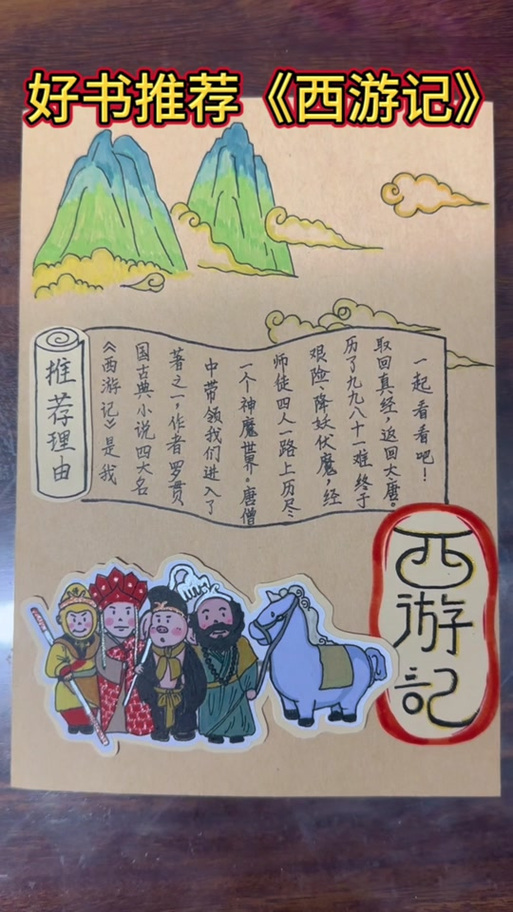 好书推荐《西游记》
推荐理由
《西游记》是我
国古典小说四大名
著之一，作者罗贯
中带领我们进入了
一个神魔世界。唐僧
师徒四人一路上历尽
艰险、降妖伏魔，经
历了九九八十一难终于
取回真经，返回大唐。
一起看看吧！
西游記